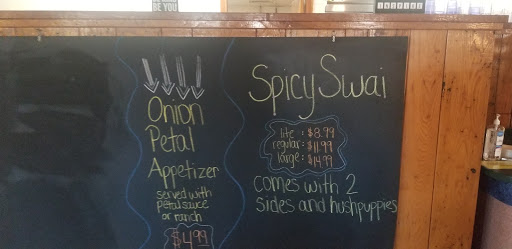 BE YOU
Onion
Petal
Appetizer
served with
petal sauce
or ranch
$4.99
Spicy Swai
lite : $8.99
regular : $11.99
large : $14.99
comes with 2
sides and hushpuppies